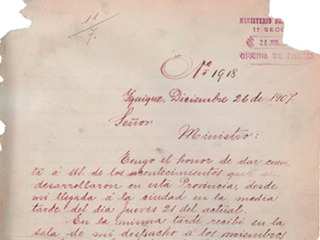 11
7.
MINISTERIO D
1ª SECC
OFICINA DE PARTES
Nº 1918
Iquique, Diciembre 26 de 1907.
Señor
Ministro:
Tengo el honor de dar cuen
ta á US. de los acontecimientos que se
desarrollaron en esta Provincia, desde
mi llegada á la ciudad en la media
tarde del dia jueves 21 del actual.
En la misma tarde recibí en la
sala de mi despacho á los miembros